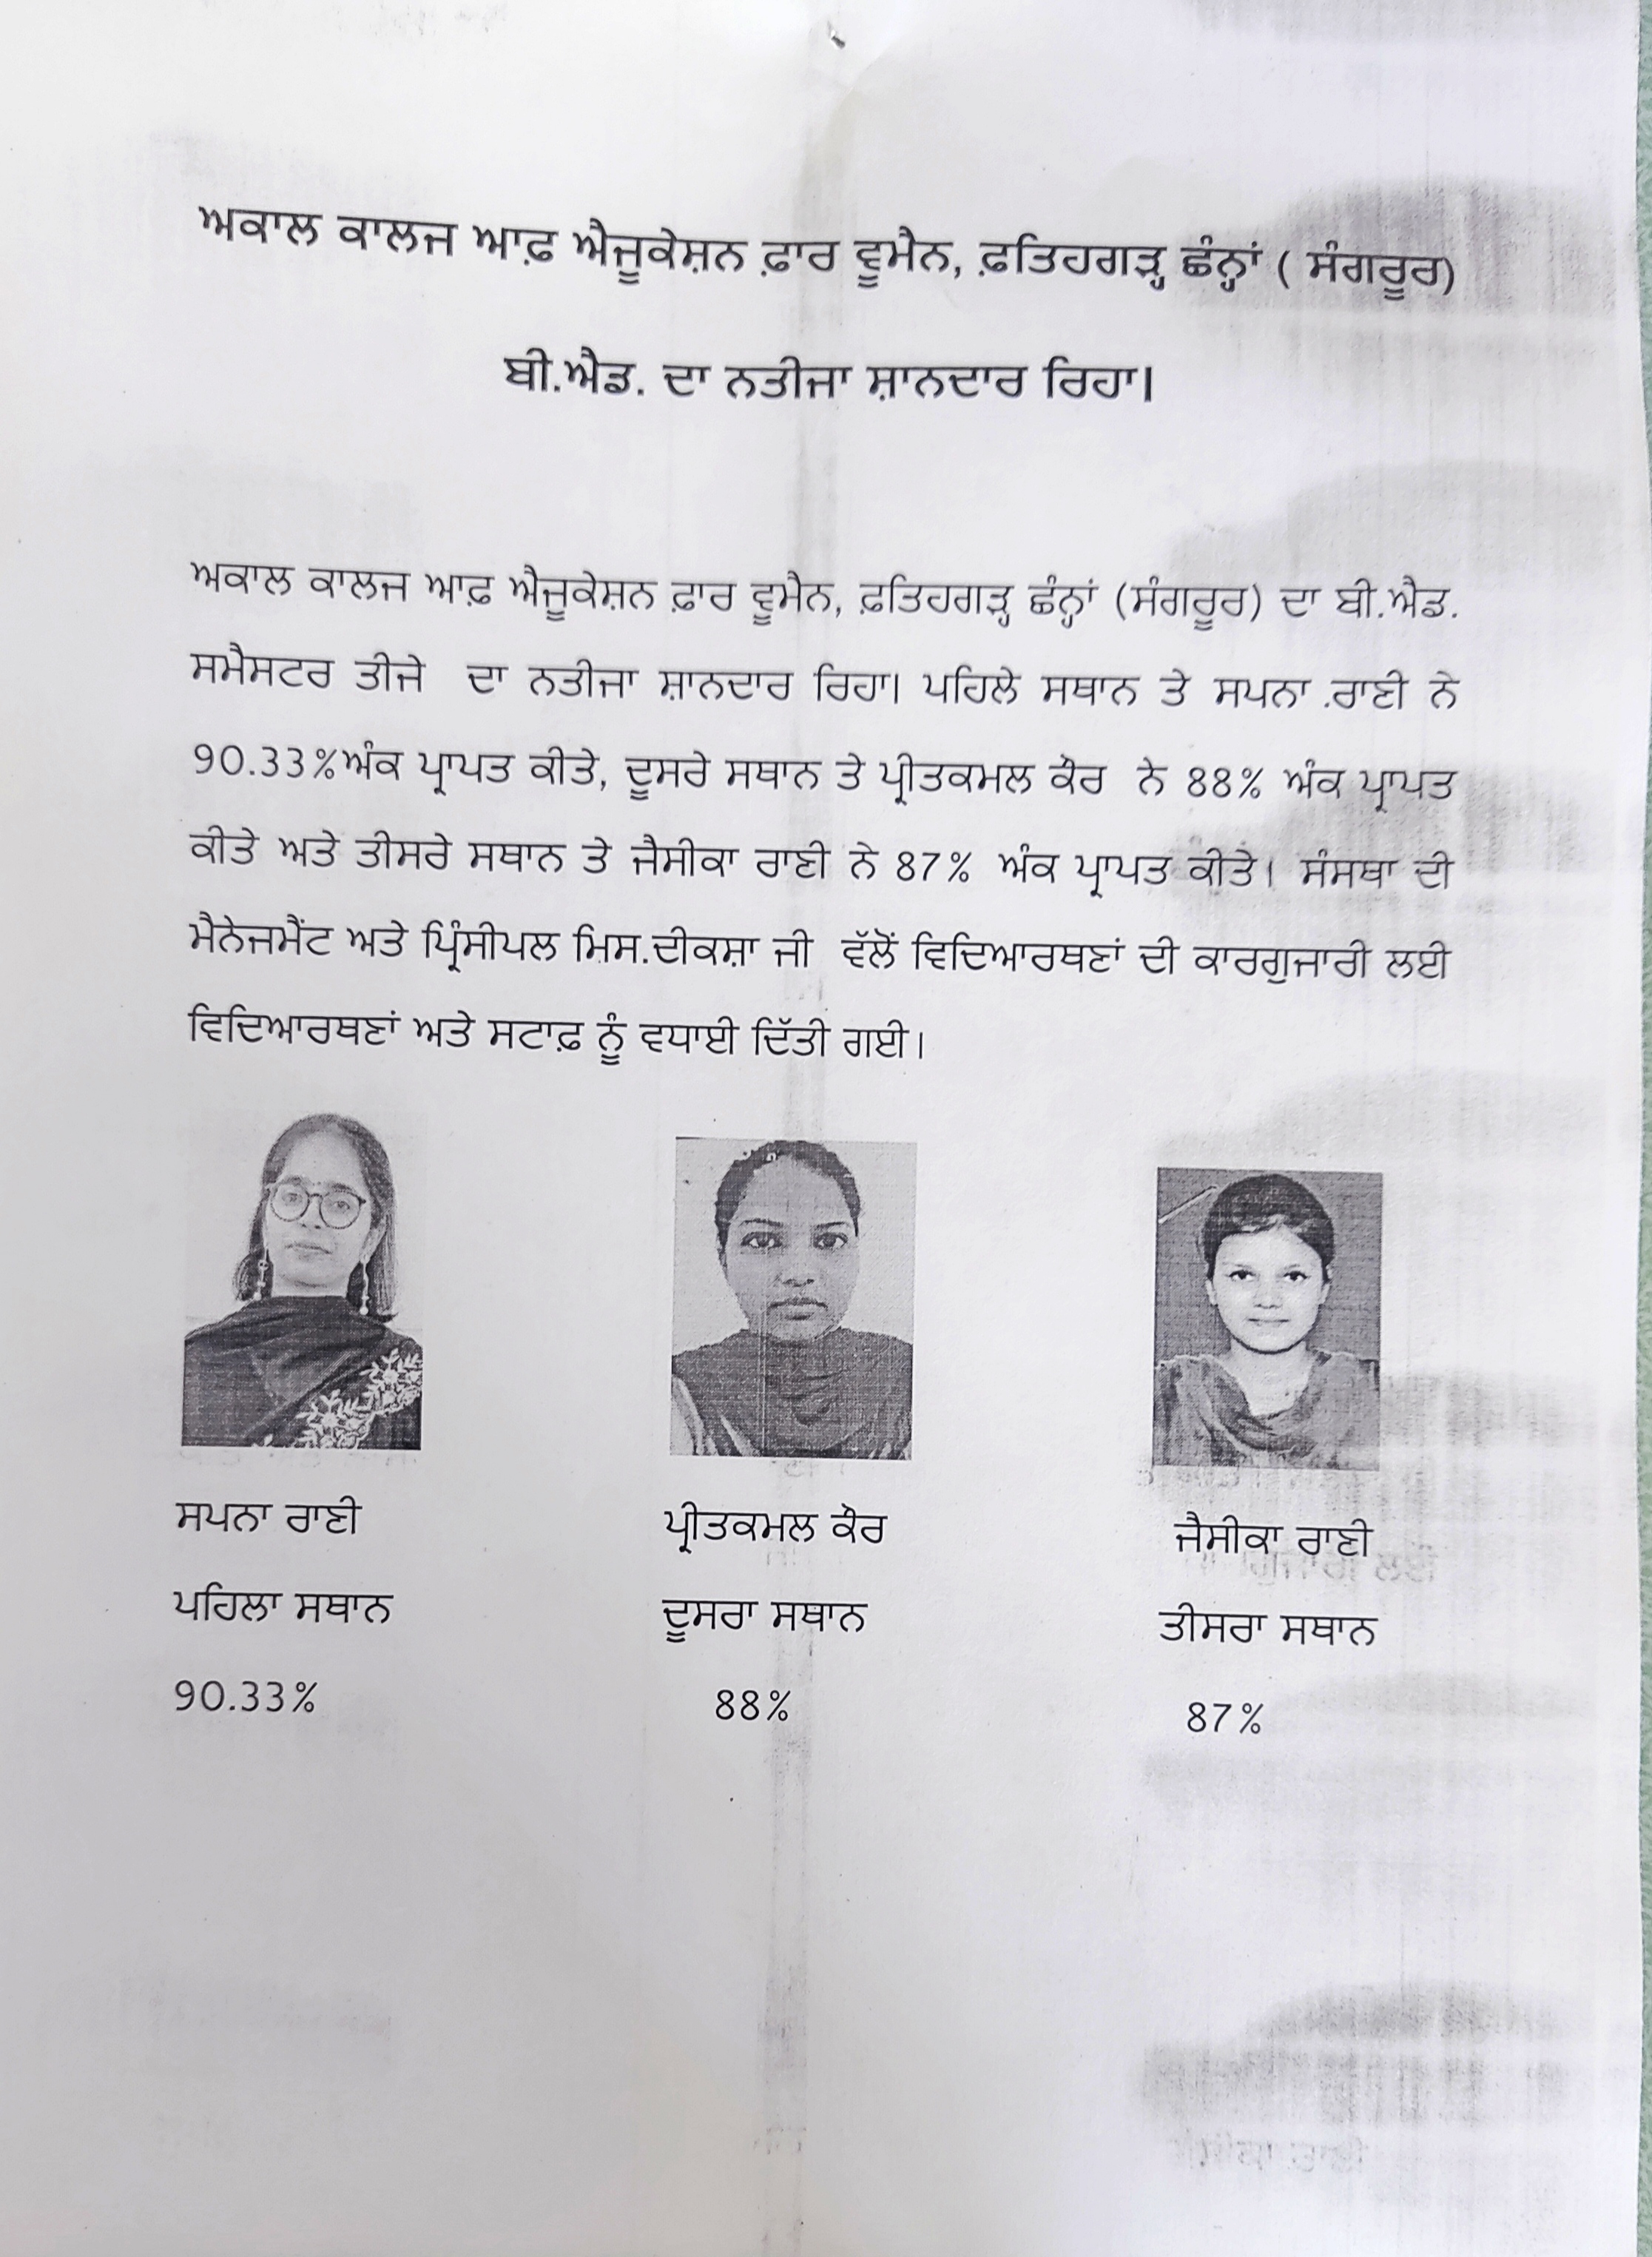 ਅਕਾਲ ਕਾਲਜ ਆਫ਼ ਐਜੂਕੇਸ਼ਨ ਫ਼ਾਰ ਵੂਮੈਨ, ਫ਼ਤਿਹਗੜ੍ਹ ਛੰਨ੍ਹਾਂ ( ਸੰਗਰੂਰ)
ਬੀ.ਐਡ. ਦਾ ਨਤੀਜਾ ਸ਼ਾਨਦਾਰ ਰਿਹਾ।
ਅਕਾਲ ਕਾਲਜ ਆਫ਼ ਐਜੂਕੇਸ਼ਨ ਫ਼ਾਰ ਵੂਮੈਨ, ਫ਼ਤਿਹਗੜ੍ਹ ਛੰਨ੍ਹਾਂ (ਸੰਗਰੂਰ) ਦਾ ਬੀ.ਐਡ.
ਸਮੈਸਟਰ ਤੀਜੇ ਦਾ ਨਤੀਜਾ ਸ਼ਾਨਦਾਰ ਰਿਹਾ। ਪਹਿਲੇ ਸਥਾਨ ਤੇ ਸਪਨਾ .ਰਾਣੀ ਨੇ
90.33%ਅੰਕ ਪ੍ਰਾਪਤ ਕੀਤੇ, ਦੂਸਰੇ ਸਥਾਨ ਤੇ ਪ੍ਰੀਤਕਮਲ ਕੌਰ ਨੇ 88% ਅੰਕ ਪ੍ਰਾਪਤ
ਕੀਤੇ ਅਤੇ ਤੀਸਰੇ ਸਥਾਨ ਤੇ ਜੈਸੀਕਾ ਰਾਣੀ ਨੇ 87% ਅੰਕ ਪ੍ਰਾਪਤ ਕੀਤੇ। ਸੰਸਥਾ ਦੀ
ਮੈਨੇਜਮੈਂਟ ਅਤੇ ਪ੍ਰਿੰਸੀਪਲ ਮਿਸ.ਦੀਕਸ਼ਾ ਜੀ ਵੱਲੋਂ ਵਿਦਿਆਰਥਣਾਂ ਦੀ ਕਾਰਗੁਜਾਰੀ ਲਈ
ਵਿਦਿਆਰਥਣਾਂ ਅਤੇ ਸਟਾਫ਼ ਨੂੰ ਵਧਾਈ ਦਿੱਤੀ ਗਈ।
ਸਪਨਾ ਰਾਣੀ ਪ੍ਰੀਤਕਮਲ ਕੌਰ ਜੈਸੀਕਾ ਰਾਣੀ
ਪਹਿਲਾ ਸਥਾਨ ਦੂਸਰਾ ਸਥਾਨ ਤੀਸਰਾ ਸਥਾਨ
90.33% 88% 87%